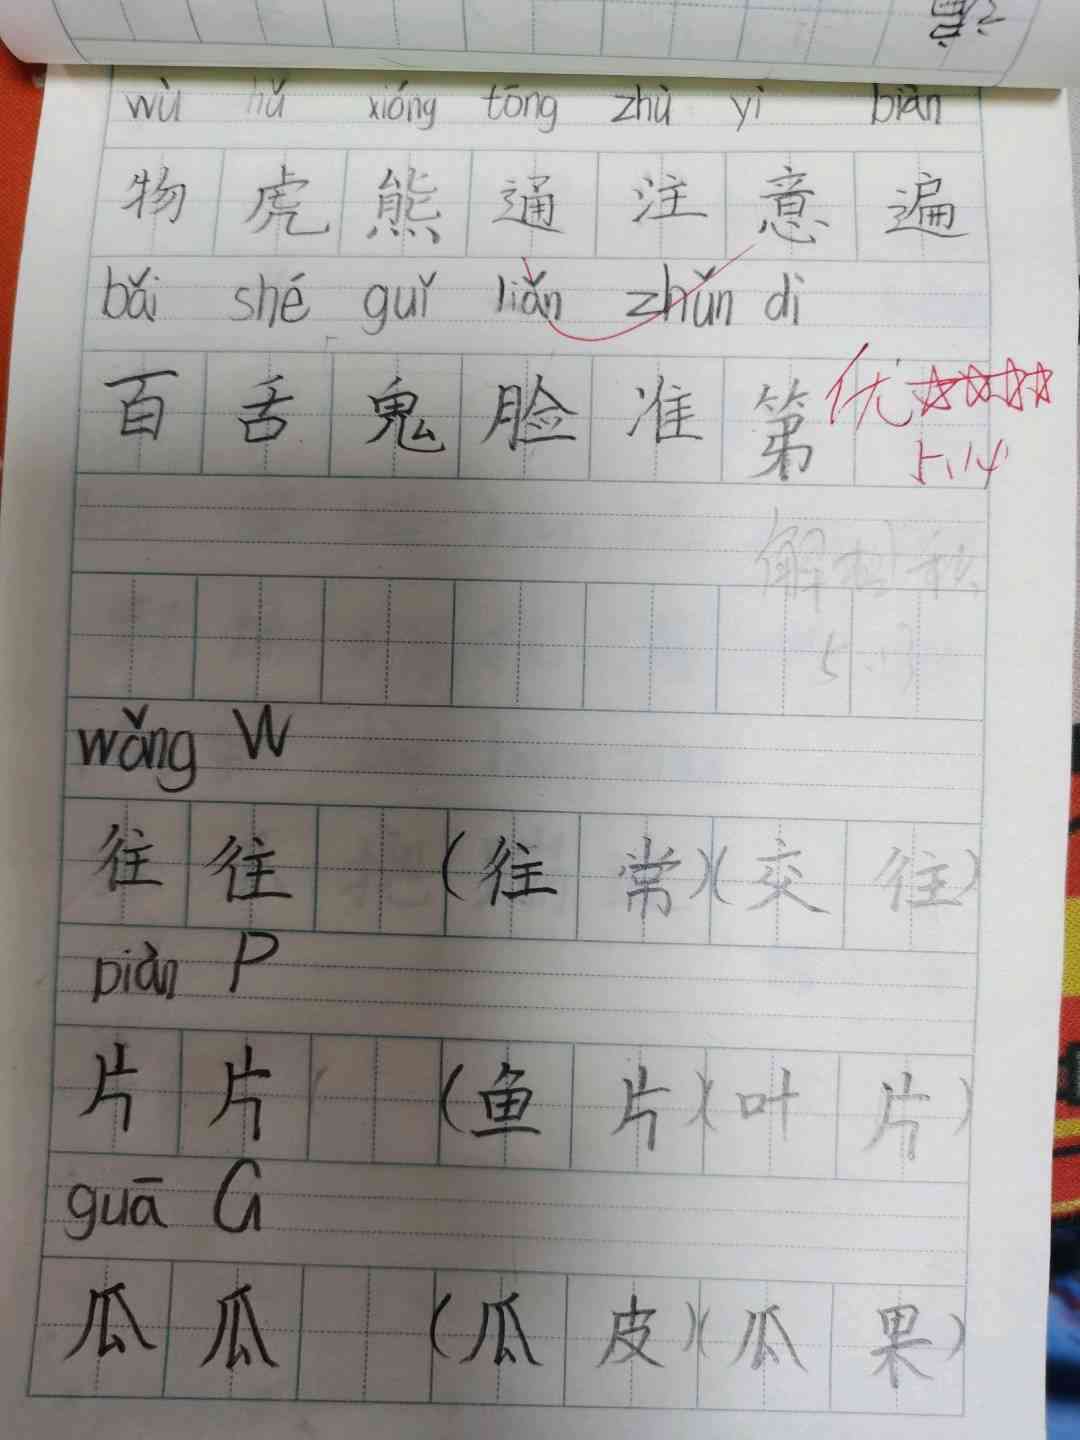 wù hǔ xióng tōng zhù yì biàn
物 虎 熊 通 注 意 遍
bǎi shé guǐ liǎn zhǔn dì
百 舌 鬼 脸 准 第
优 ☆☆☆☆
5.14
wǎng W
往 往 (往 常)(交 往)
piàn P
片 片 (鱼 片)(叶 片)
guā G
瓜 瓜 (瓜 皮)(瓜 果)